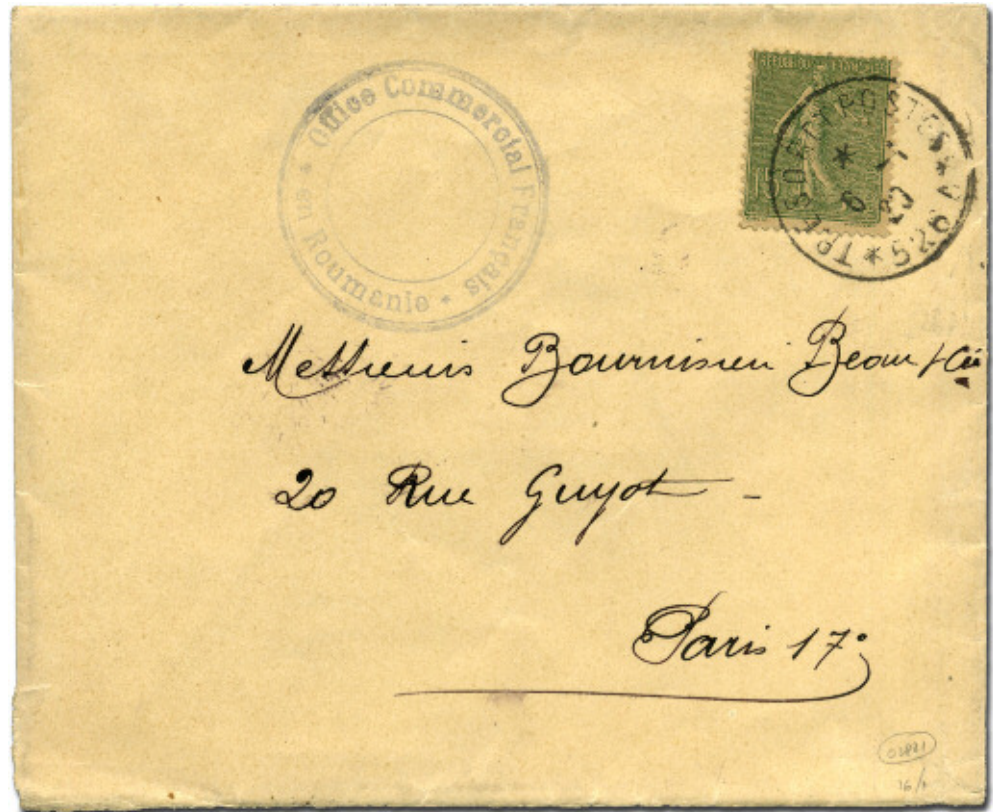 Office Commercial Français
en Roumanie
REPUBLIQUE FRANÇAISE
15
TRESOR ET POSTES * 526 *
* 6 - 1
20
Messieurs Bournisien Beau & Cie
20 Rue Guyot -
Paris 17e
02821